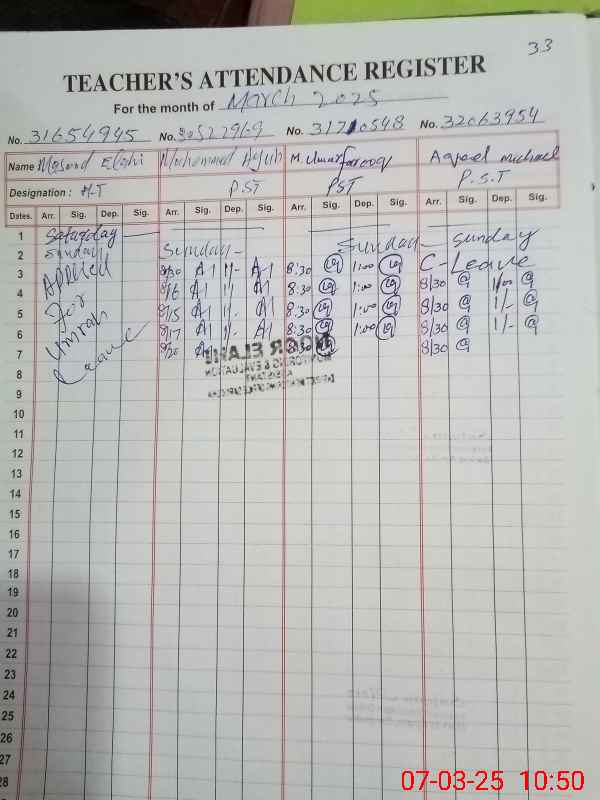 33
TEACHER'S ATTENDANCE REGISTER
For the month of March 2025
No. 31654945 No. No. 31710548 No. 32063954
Name Masood Elahi Muhammad Ayub M. Umar farooq Aqeel michael
Designation : H.T P.ST PST P.S.T
Dates. Arr. Sig. Dep. Sig. Arr. Sig. Dep. Sig. Arr. Sig. Dep. Sig. Arr. Sig. Dep. Sig.
1 Saturday
2 Sunday Sunday Sunday Sunday
3 Applied 8/20 1/- 8:30 1:00 C-Leave
4 For 8/16 1/- 8:30 1:00 8/30 1/00
5 Umrah 8/15 1/- 8:30 1:00 8/30 1/-
6 Leave 8/17 1/- 8:30 1:00 8/30 1/-
7 8/20 8:30 8/30
NOOR ELAHI
MONITORING & EVALUATION
ASSISTANT
8
9
10
11
12
13
14
15
16
17
18
19
20
21
22
23
24
25
26
27
28
07-03-25 10:50